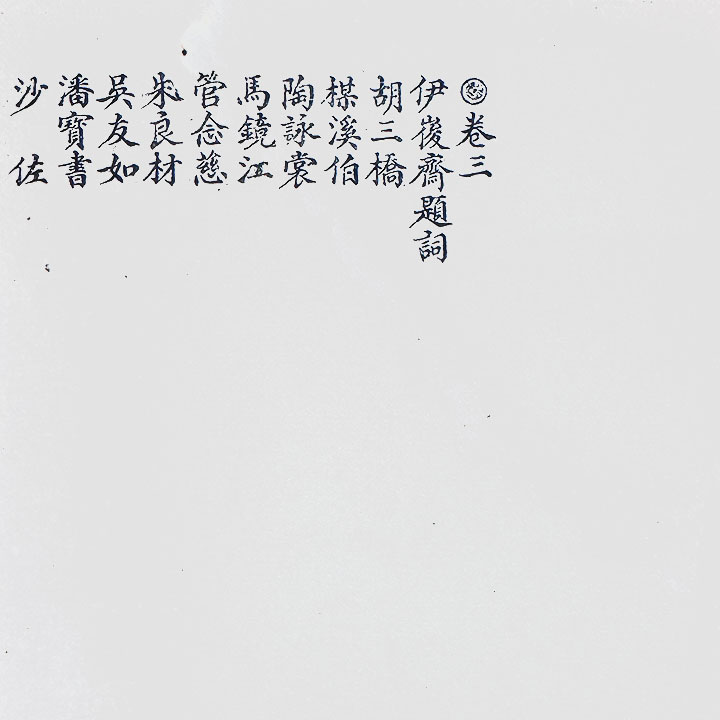 卷三
伊峻齋題詞
胡三橋
楳溪伯
陶詠裳
馬鏡江
管念慈
朱良材
吳友如
潘寶書
沙佐